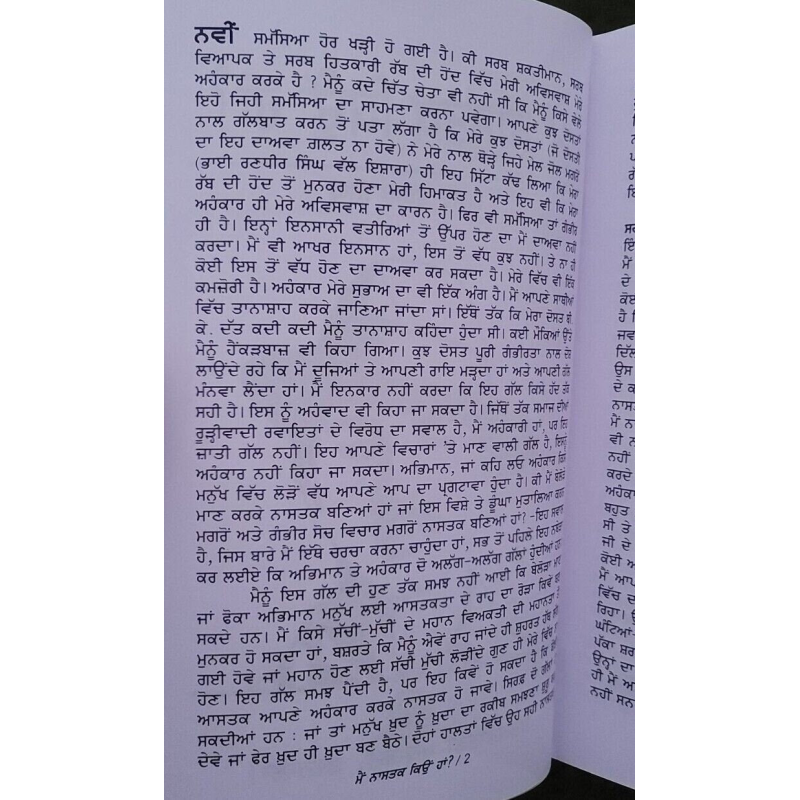 ਨਵੀਂ ਸਮੱਸਿਆ ਹੋਰ ਖੜ੍ਹੀ ਹੋ ਗਈ ਹੈ। ਕੀ ਸਰਬ ਸ਼ਕਤੀਮਾਨ, ਸਰਬ
ਵਿਆਪਕ ਤੇ ਸਰਬ ਹਿਤਕਾਰੀ ਰੱਬ ਦੀ ਹੋਂਦ ਵਿੱਚ ਮੇਰੀ ਅਵਿਸਵਾਸ਼ ਮੇਰੇ
ਅਹੰਕਾਰ ਕਰਕੇ ਹੈ ? ਮੈਨੂੰ ਕਦੇ ਚਿੱਤ ਚੇਤਾ ਵੀ ਨਹੀਂ ਸੀ ਕਿ ਮੈਨੂੰ ਕਿਸੇ ਵੇਲੇ
ਇਹੋ ਜਿਹੀ ਸਮੱਸਿਆ ਦਾ ਸਾਹਮਣਾ ਕਰਨਾ ਪਵੇਗਾ। ਆਪਣੇ ਕੁਝ ਦੋਸਤਾਂ
ਨਾਲ ਗੱਲਬਾਤ ਕਰਨ ਤੋਂ ਪਤਾ ਲੱਗਾ ਹੈ ਕਿ ਮੇਰੇ ਕੁਝ ਦੋਸਤਾਂ (ਜੋ ਦੋਸਤੀ
ਦਾ ਇਹ ਦਾਅਵਾ ਗ਼ਲਤ ਨਾ ਹੋਵੇ) ਨੇ ਮੇਰੇ ਨਾਲ ਥੋੜ੍ਹੇ ਜਿਹੇ ਮੇਲ ਜੋਲ ਮਗਰੋਂ
(ਭਾਈ ਰਣਧੀਰ ਸਿੰਘ ਵੱਲ ਇਸ਼ਾਰਾ) ਹੀ ਇਹ ਸਿੱਟਾ ਕੱਢ ਲਿਆ ਕਿ ਮੇਰਾ
ਰੱਬ ਦੀ ਹੋਂਦ ਤੋਂ ਮੁਨਕਰ ਹੋਣਾ ਮੇਰੀ ਹਿਮਾਕਤ ਹੈ ਅਤੇ ਇਹ ਵੀ ਕਿ ਮੇਰਾ
ਅਹੰਕਾਰ ਹੀ ਮੇਰੇ ਅਵਿਸਵਾਸ਼ ਦਾ ਕਾਰਨ ਹੈ। ਫਿਰ ਵੀ ਸਮੱਸਿਆ ਤਾਂ ਗੰਭੀਰ
ਹੀ ਹੈ। ਇਨ੍ਹਾਂ ਇਨਸਾਨੀ ਵਤੀਰਿਆਂ ਤੋਂ ਉੱਪਰ ਹੋਣ ਦਾ ਮੈਂ ਦਾਅਵਾ ਨਹੀਂ
ਕਰਦਾ। ਮੈਂ ਵੀ ਆਖਰ ਇਨਸਾਨ ਹਾਂ, ਇਸ ਤੋਂ ਵੱਧ ਕੁਝ ਨਹੀਂ। ਤੇ ਨਾ ਹੀ
ਕੋਈ ਇਸ ਤੋਂ ਵੱਧ ਹੋਣ ਦਾ ਦਾਅਵਾ ਕਰ ਸਕਦਾ ਹੈ। ਮੇਰੇ ਵਿੱਚ ਵੀ ਇੱਕ
ਕਮਜ਼ੋਰੀ ਹੈ। ਅਹੰਕਾਰ ਮੇਰੇ ਸੁਭਾਅ ਦਾ ਵੀ ਇੱਕ ਅੰਗ ਹੈ। ਮੈਂ ਆਪਣੇ ਸਾਥੀਆਂ
ਵਿੱਚ ਤਾਨਾਸ਼ਾਹ ਕਰਕੇ ਜਾਣਿਆ ਜਾਂਦਾ ਸਾਂ। ਇੱਥੋਂ ਤੱਕ ਕਿ ਮੇਰਾ ਦੋਸਤ ਬੀ.
ਕੇ. ਦੱਤ ਕਦੀ ਕਦੀ ਮੈਨੂੰ ਤਾਨਾਸ਼ਾਹ ਕਹਿੰਦਾ ਹੁੰਦਾ ਸੀ। ਕਈ ਮੌਕਿਆਂ ਉੱਤੇ
ਮੈਨੂੰ ਹੈਂਕੜਬਾਜ਼ ਵੀ ਕਿਹਾ ਗਿਆ। ਕੁਝ ਦੋਸਤ ਪੂਰੀ ਗੰਭੀਰਤਾ ਨਾਲ ਦੋਸ਼
ਲਾਉਂਦੇ ਰਹੇ ਕਿ ਮੈਂ ਦੂਜਿਆਂ ਤੇ ਆਪਣੀ ਰਾਇ ਮੜ੍ਹਦਾ ਹਾਂ ਅਤੇ ਆਪਣੀ ਗੱਲ
ਮੰਨਵਾ ਲੈਂਦਾ ਹਾਂ। ਮੈਂ ਇਨਕਾਰ ਨਹੀਂ ਕਰਦਾ ਕਿ ਇਹ ਗੱਲ ਕਿਸੇ ਹੱਦ ਤੱਕ
ਸਹੀ ਹੈ। ਇਸ ਨੂੰ ਅਹੰਵਾਦ ਵੀ ਕਿਹਾ ਜਾ ਸਕਦਾ ਹੈ। ਜਿੱਥੋਂ ਤੱਕ ਸਮਾਜ ਦੀਆਂ
ਰੂੜ੍ਹੀਵਾਦੀ ਰਵਾਇਤਾਂ ਦੇ ਵਿਰੋਧ ਦਾ ਸਵਾਲ ਹੈ, ਮੈਂ ਅਹੰਕਾਰੀ ਹਾਂ, ਪਰ ਇਹ
ਜ਼ਾਤੀ ਗੱਲ ਨਹੀਂ। ਇਹ ਆਪਣੇ ਵਿਚਾਰਾਂ 'ਤੇ ਮਾਣ ਵਾਲੀ ਗੱਲ ਹੈ, ਇਸਨੂੰ
ਅਹੰਕਾਰ ਨਹੀਂ ਕਿਹਾ ਜਾ ਸਕਦਾ। ਅਭਿਮਾਨ, ਜਾਂ ਕਹਿ ਲਓ ਅਹੰਕਾਰ ਕਿਸੇ
ਮਨੁੱਖ ਵਿੱਚ ਲੋੜੋਂ ਵੱਧ ਆਪਣੇ ਆਪ ਦਾ ਪ੍ਰਗਟਾਵਾ ਹੁੰਦਾ ਹੈ। ਕੀ ਮੈਂ ਬੇਲੋੜੇ
ਮਾਣ ਕਰਕੇ ਨਾਸਤਕ ਬਣਿਆਂ ਹਾਂ ਜਾਂ ਇਸ ਵਿਸ਼ੇ ਤੇ ਡੂੰਘਾ ਮੁਤਾਲਿਆ ਕਰਨ
ਮਗਰੋਂ ਅਤੇ ਗੰਭੀਰ ਸੋਚ ਵਿਚਾਰ ਮਗਰੋਂ ਨਾਸਤਕ ਬਣਿਆਂ ਹਾਂ? -ਇਹ ਸਵਾਲ
ਹੈ, ਜਿਸ ਬਾਰੇ ਮੈਂ ਇੱਥੇ ਚਰਚਾ ਕਰਨਾ ਚਾਹੁੰਦਾ ਹਾਂ, ਸਭ ਤੋਂ ਪਹਿਲੇ ਇਹ ਨਬੇੜਾ
ਕਰ ਲਈਏ ਕਿ ਅਭਿਮਾਨ ਤੇ ਅਹੰਕਾਰ ਦੋ ਅਲਗ-ਅਲੱਗ ਗੱਲਾਂ ਹੁੰਦੀਆਂ ਹਨ।
ਮੈਨੂੰ ਇਸ ਗੱਲ ਦੀ ਹੁਣ ਤੱਕ ਸਮਝ ਨਹੀਂ ਆਈ ਕਿ ਬੇਲੋੜਾ ਮਾਣ
ਜਾਂ ਫੋਕਾ ਅਭਿਮਾਨ ਮਨੁੱਖ ਲਈ ਆਸਤਕਤਾ ਦੇ ਰਾਹ ਦਾ ਰੋੜਾ ਕਿਵੇਂ ਬਣ
ਸਕਦੇ ਹਨ। ਮੈਂ ਕਿਸੇ ਸੱਚੀਂ-ਮੁੱਚੀਂ ਦੇ ਮਹਾਨ ਵਿਅਕਤੀ ਦੀ ਮਹਾਨਤਾ ਤੋਂ
ਮੁਨਕਰ ਹੋ ਸਕਦਾ ਹਾਂ, ਬਸ਼ਰਤੇ ਕਿ ਮੈਨੂੰ ਐਵੇਂ ਰਾਹ ਜਾਂਦੇ ਹੀ ਸ਼ੁਹਰਤ ਹੱਥ
ਗਈ ਹੋਵੇ ਜਾਂ ਮਹਾਨ ਹੋਣ ਲਈ ਸੱਚੀ ਮੁੱਚੀ ਲੋੜੀਂਦੇ ਗੁਣ ਹੀ ਮੇਰੇ ਵਿੱਚ
ਹੋਣ। ਇਹ ਗੱਲ ਸਮਝ ਪੈਂਦੀ ਹੈ, ਪਰ ਇਹ ਕਿਵੇਂ ਹੋ ਸਕਦਾ ਹੈ ਕਿ ਕੋਈ
ਆਸਤਕ ਆਪਣੇ ਅਹੰਕਾਰ ਕਰਕੇ ਨਾਸਤਕ ਹੋ ਜਾਵੇ। ਸਿਰਫ਼ ਦੋ ਗੱਲਾਂ
ਸਕਦੀਆਂ ਹਨ : ਜਾਂ ਤਾਂ ਮਨੁੱਖ ਖ਼ੁਦ ਨੂੰ ਖ਼ੁਦਾ ਦਾ ਰਕੀਬ ਸਮਝਣਾ ਸ਼ੁਰੂ ਕਰ
ਦੇਵੇ ਜਾਂ ਫੇਰ ਖ਼ੁਦ ਹੀ ਖ਼ੁਦਾ ਬਣ ਬੈਠੇ। ਦੋਹਾਂ ਹਾਲਤਾਂ ਵਿੱਚ ਉਹ ਸਹੀ ਨਾਸਤਕ
ਮੈਂ ਨਾਸਤਕ ਕਿਉਂ ਹਾਂ?/2
ਮੈਂ
ਦੇ
ਕੋਈ
ਹੈ
ਜਵਾ
ਦਿੱਲ
ਉਸ
ਦੇ ਕ
ਮੈਂ ਨਾ
ਵੀ ਨਾ
ਨਹੀਂ
ਕਰਦੇ
ਅਹੰਕਾ
ਬਹੁਤ
ਸੀ ਤੇ
ਜੀ ਦੇ
ਕੋਈ ਅ
ਮੈਂ ਆਪ
ਵਿੱਚ ਦਾ
ਰਿਹਾ।
ਘੌਂਟਿਆਂ
ਪੱਕਾ ਸ਼ਰ
ਉਨ੍ਹਾਂ ਦਾ
ਹੀ ਮੈਂ ਅ
ਨਹੀਂ ਸਨ